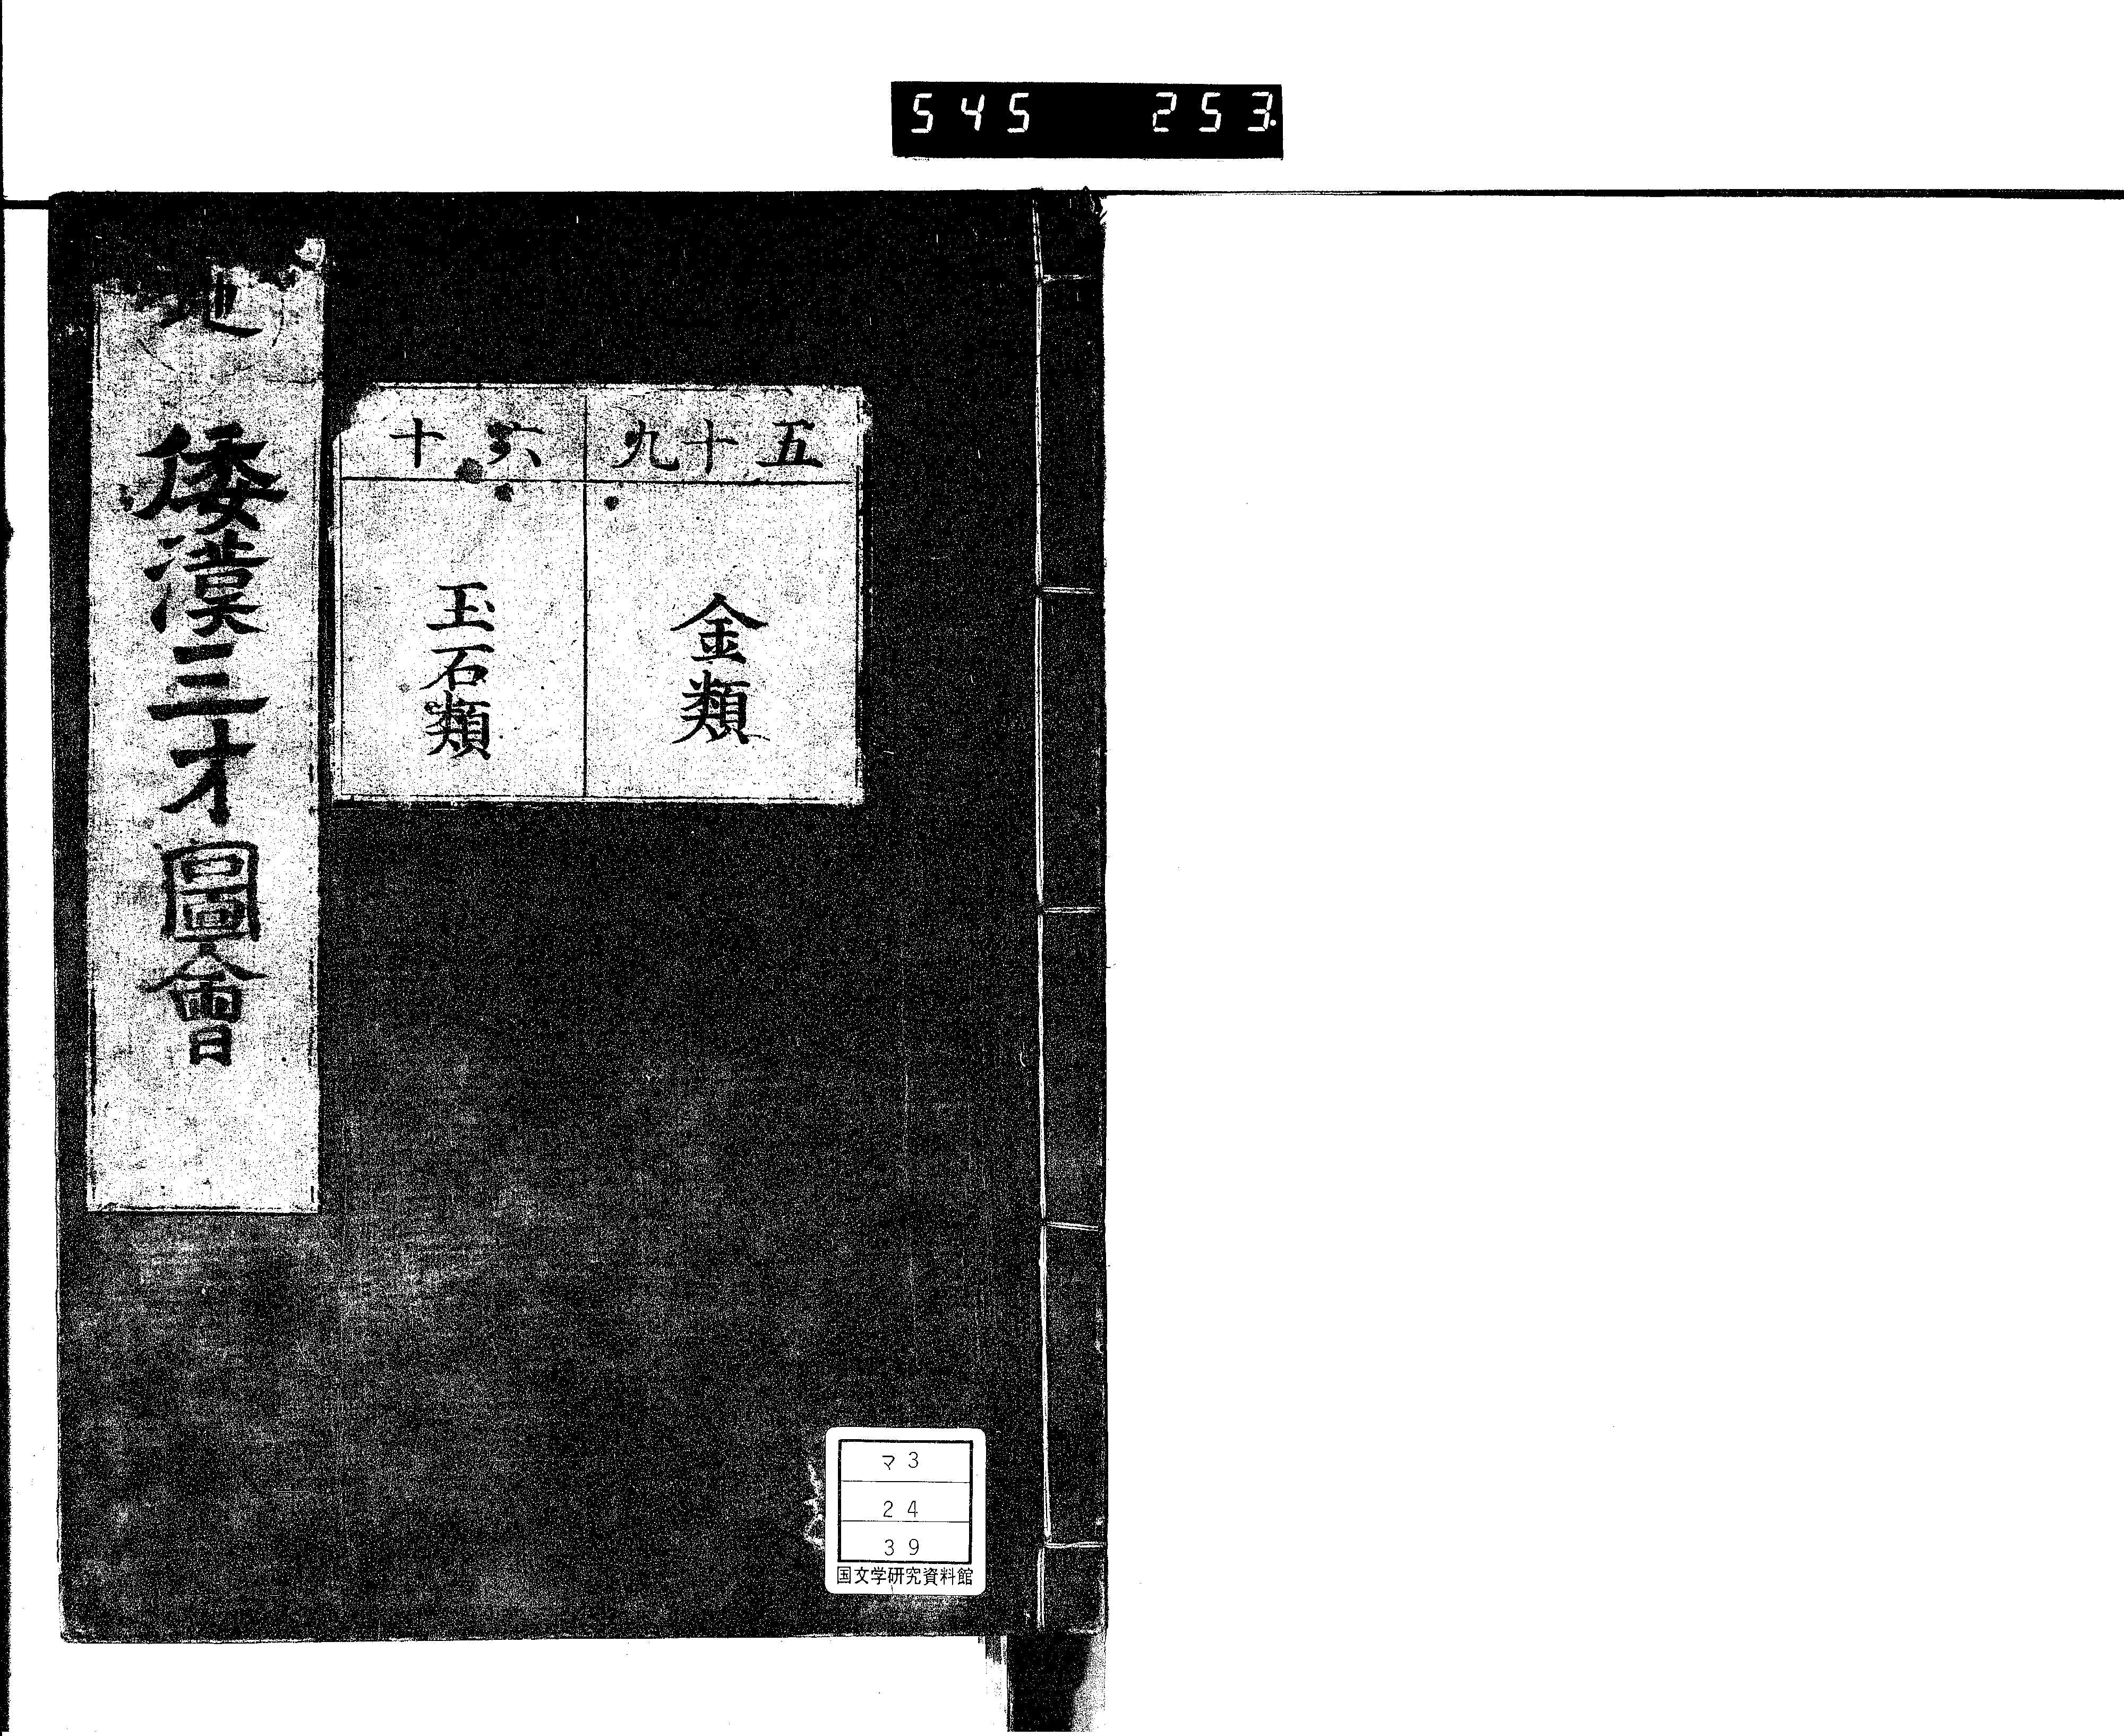 545 253
五十九
金類
六十
玉石類
地
倭漢三才圖會
マ3
24
39
国文学研究資料館